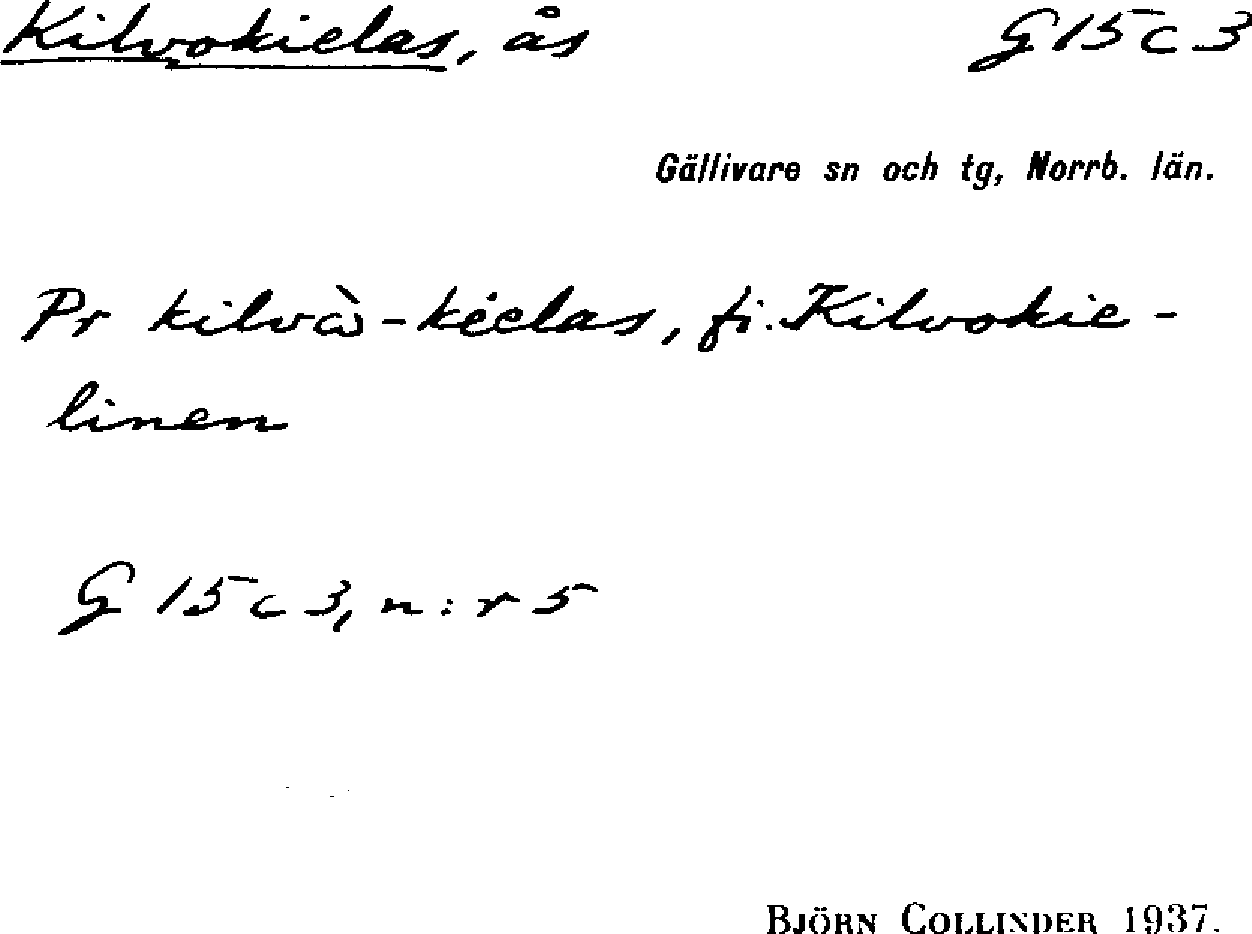 Kilvokielas, ås G15c3
Gällivare sn och tg, Norrb. län.
Pr kilvὼ-kéelas, fi. Kilvokie-
linen
G 15c3, n:r 5
BJÖRN COLLINDER 1937.